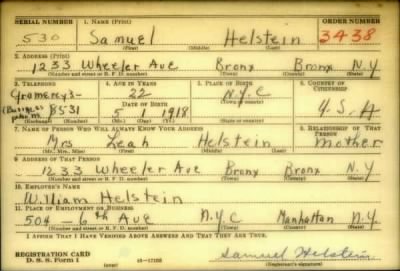 SERIAL NUMBER 1. NAME (Print) ORDER NUMBER
530 Samuel Helstein 3438
(First) (Middle) (Last)
2. ADDRESS (Print)
1233 Wheeler Ave Bronx Bronx N.Y
(Number and street or R. F. D. number) (Town) (County) (State)
3. TELEPHONE 4. AGE IN YEARS 5. PLACE OF BIRTH 6. COUNTRY OF CITIZENSHIP
Gramercy 3- 22 N.Y.C
8531 DATE OF BIRTH (Town or county) U.S.A
(Business phone) 5 1 1918
(Exchange) (Number) (Mo.) (Day) (Yr.) (State or country)
7. NAME OF PERSON WHO WILL ALWAYS KNOW YOUR ADDRESS 8. RELATIONSHIP OF THAT PERSON
Mrs Leah Helstein Mother
(Mr., Mrs., Miss) (First) (Middle) (Last)
9. ADDRESS OF THAT PERSON
1233 Wheeler Ave Bronx Bronx N.Y
(Number and street or R. F. D. number) (Town) (County) (State)
10. EMPLOYER'S NAME
William Helstein
11. PLACE OF EMPLOYMENT OR BUSINESS
504 - 6th Ave N.Y.C Manhattan N.Y
(Number and street or R. F. D. number) (Town) (County) (State)
I AFFIRM THAT I HAVE VERIFIED ABOVE ANSWERS AND THAT THEY ARE TRUE.
REGISTRATION CARD Samuel Helstein
D. S. S. Form 1 (over) (Registrant's signature)